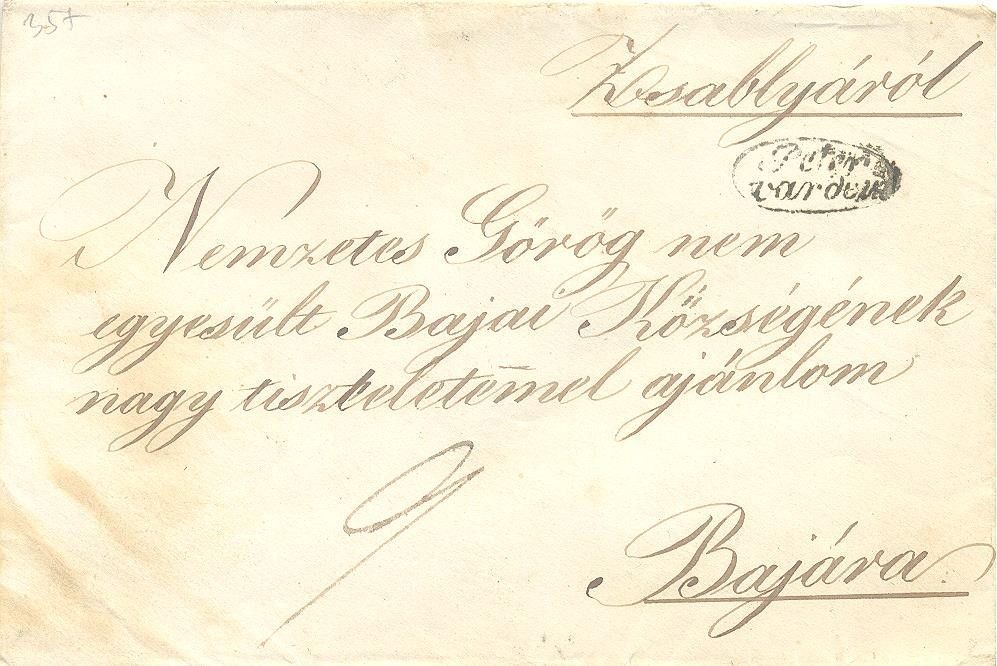 357
Zsablyáról
Peter
vardein
Nemzetes Görög nem
egyesült Bajai Községének
nagy tisztelete͞mel ajánlom
9
Bajára.